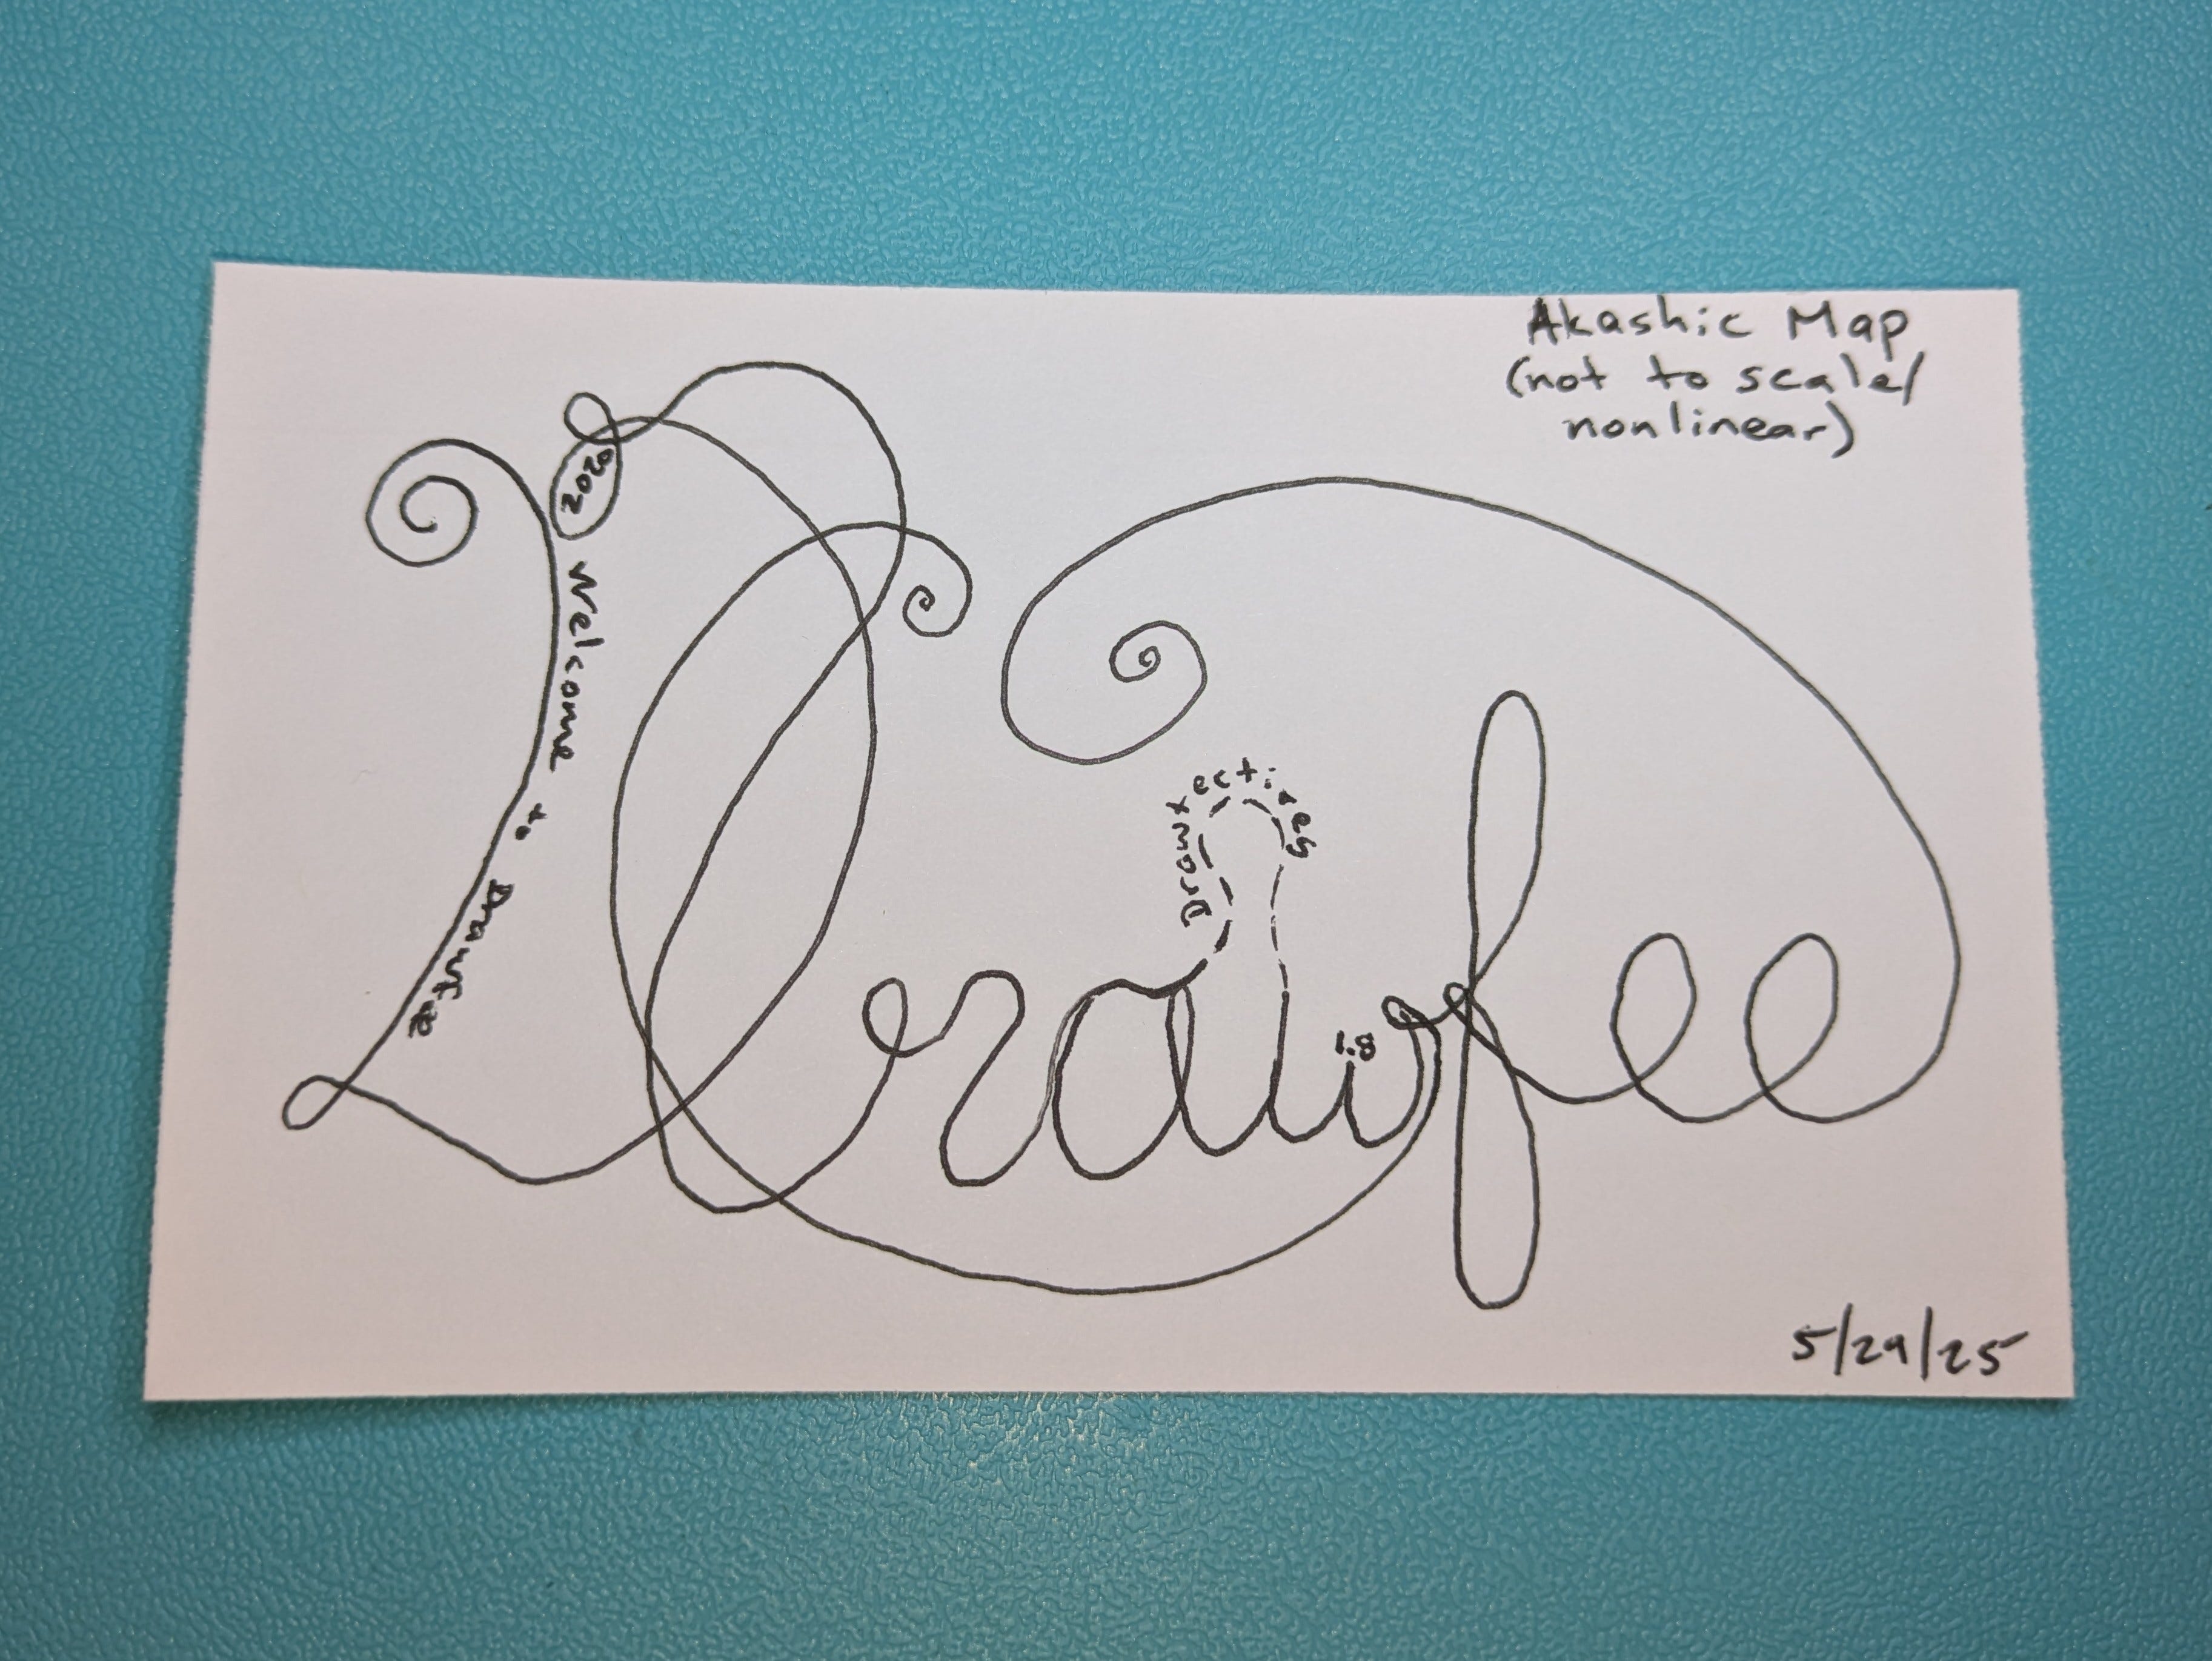 Akashic Map
(not to scale/
nonlinear)
2020
Welcome to Drawfee
Drawfee
Drawtectives
1.8
5/29/25